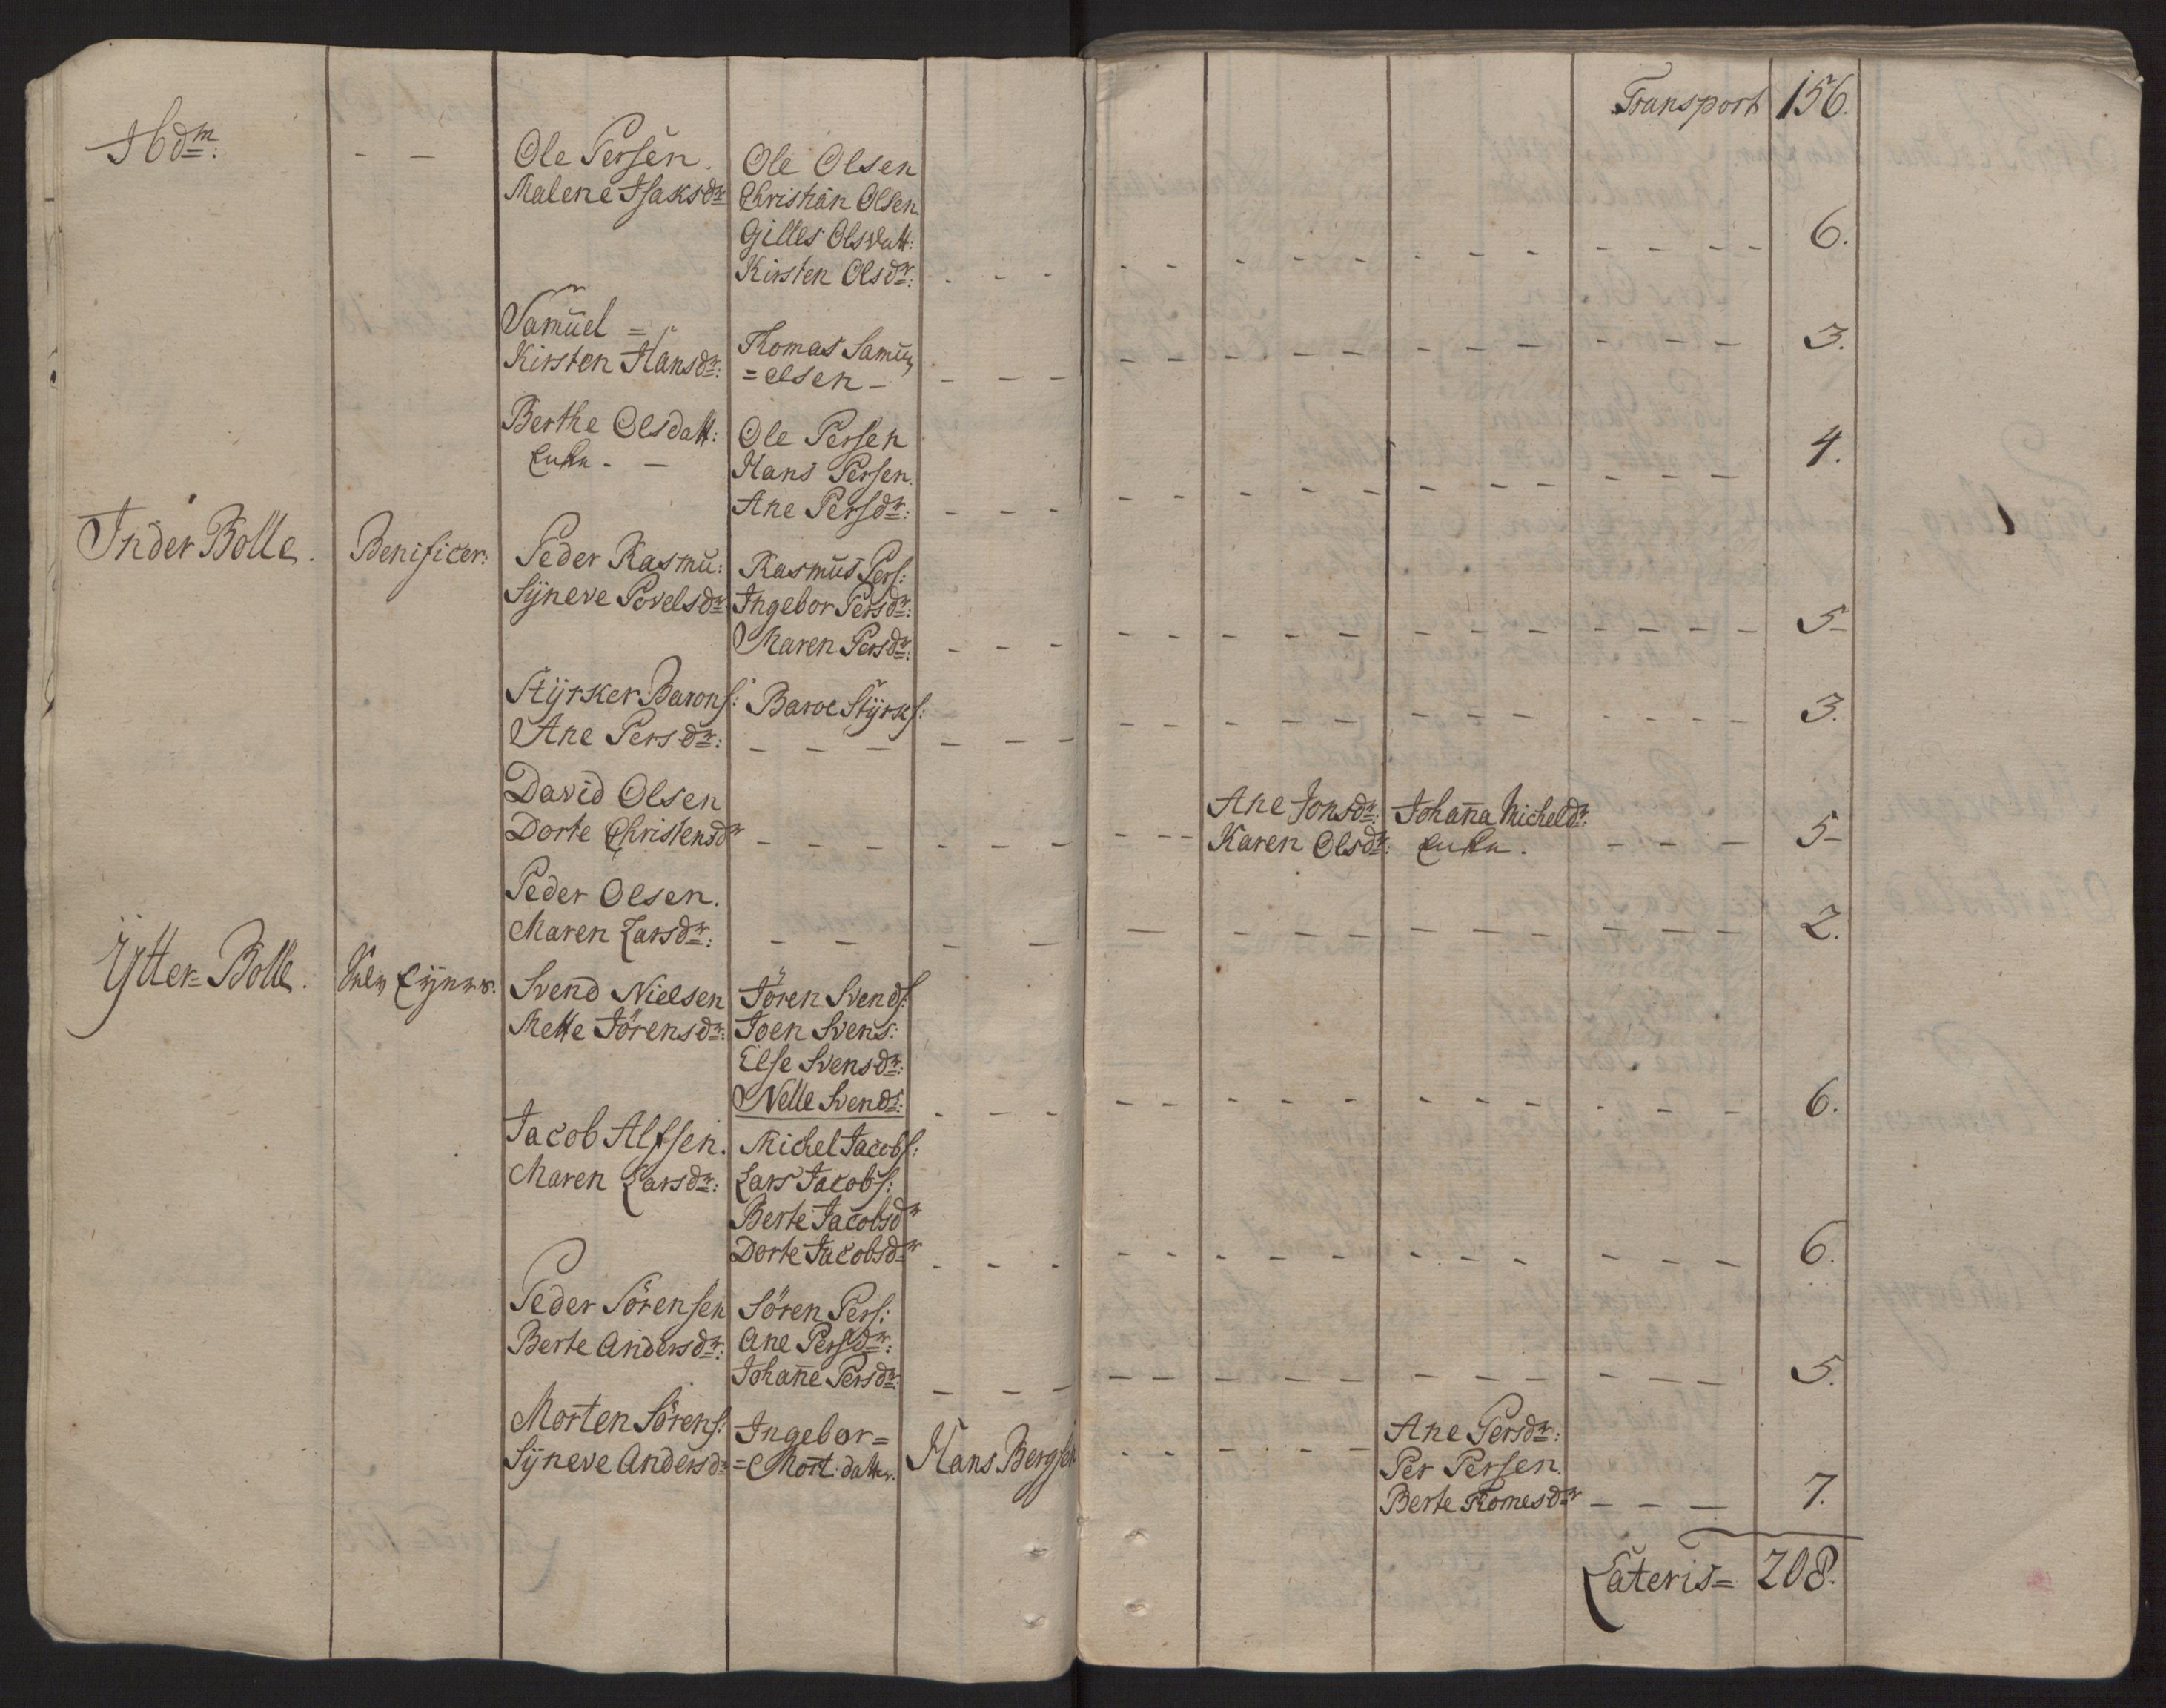 Transport 156.
Ibdm: - - Ole Persen. Ole Olsen
Malene Isaksdr Christian Olsen.
Gilles Olsdatt:
Kirsten Olsdr: - - - 6.
Samuel =
Kirsten Hansdr: Thomas Samu
= elsen - - - - 3.
Berthe Olsdatt: Ole Persen
Enke - - Hans Persen.
Ane Persdr: - - - 4.
Inder Bolle. Benificer: Peder Rasmu: Rasmus Pers:
Syneve Povelsdr Ingebor Persdr:
Maren Persdr: - - - 5-
Styrker Barons: Baroe Styrks:
Ane Persdr: - - - 3.
David Olsen
Dorte Christensdr - - - Ane Jonsdr: Johanna Micheldr:
Karen Olsdr: Enke. - - - 5-
Peder Olsen.
Maren Larsdr: - - - 2.
Ytter- Bolle. Svend Nielsen Jören Svends:
Mette Jörensdr: Joen Svens:
Else Svensdr:
Nelle Svends: - - - 6.
Jacob Alfsen. Michel Jacobs:
Maren Larsdr: Lars Jacobs:
Berte Jacobsdr
Dorte Jacobsdr - - - 6.
Peder Sörensen Sören Pers:
Berte Andersdr: Ane Persdr:
Johanne Persdr: - - - 5.
Morten Sörens: Ingebor=
Syneve Andersdr =Mort: datter. Hans Bergsen - - - Ane Persdr:
Per Persen.
Berte Thomesdr - - - 7.
Lateris= 208.